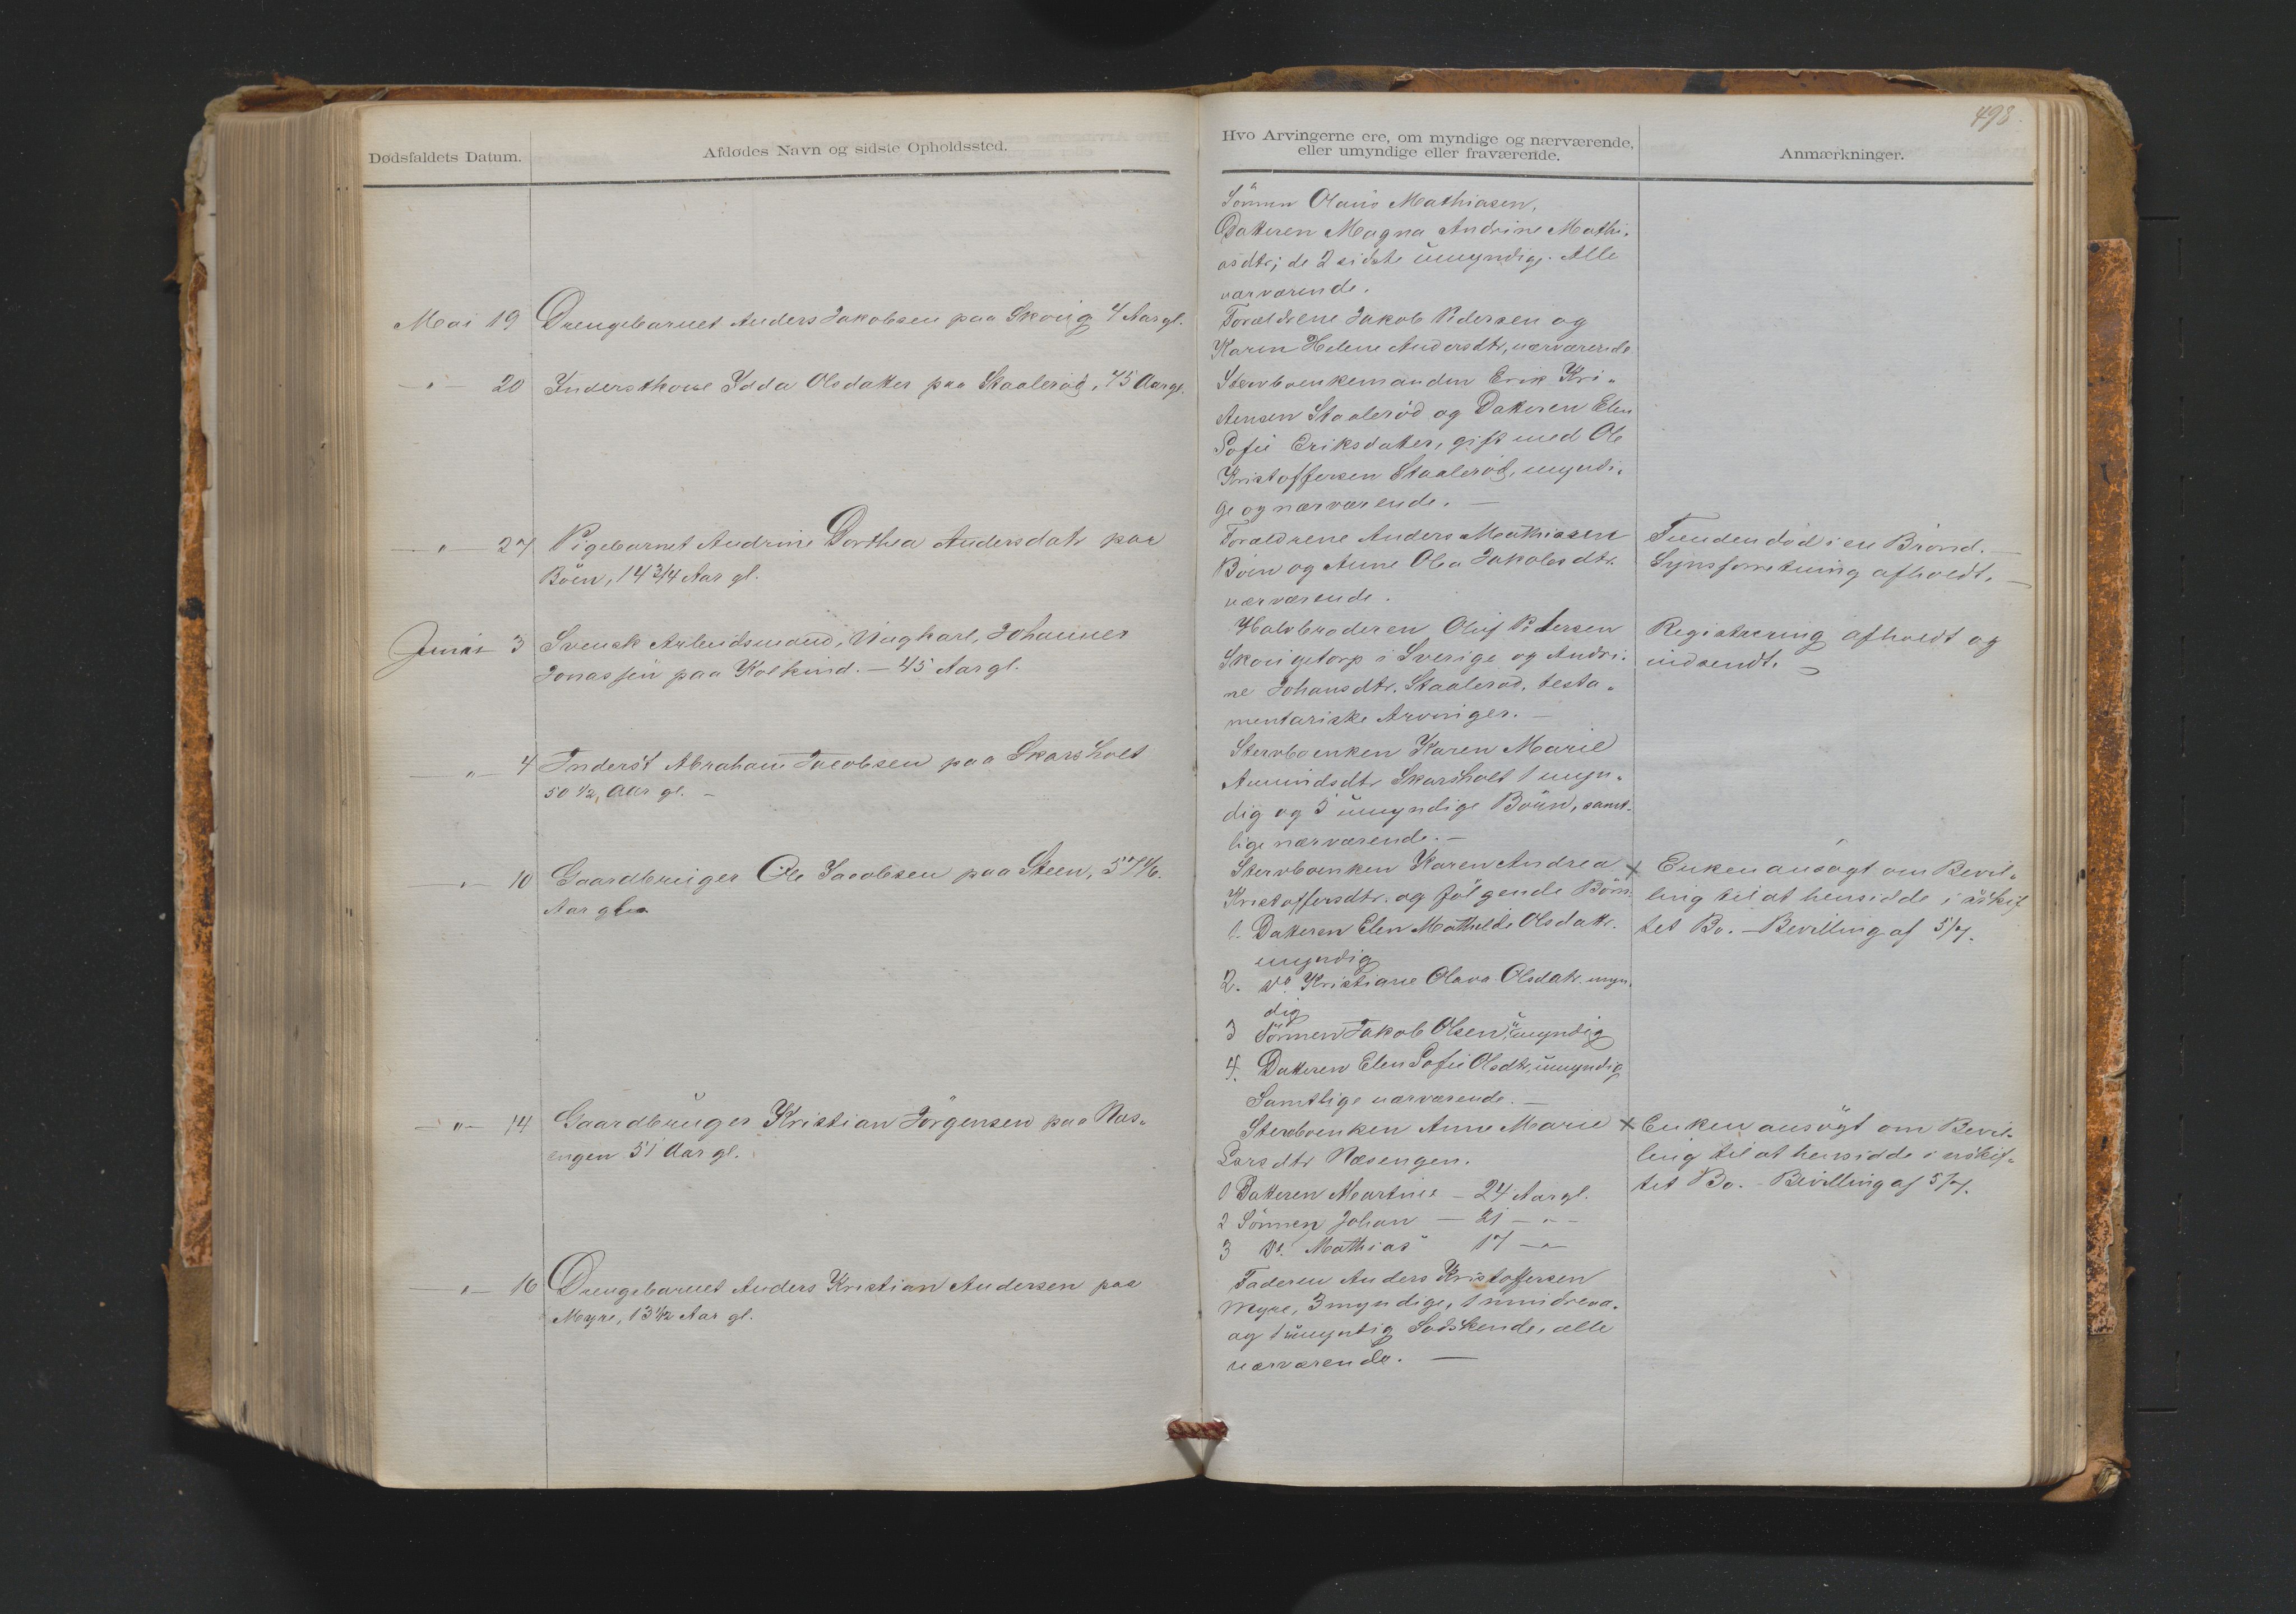 498.
Dødsfaldets Datum.
Afdødes Navn og sidste Opholdssted.
Hvo Arvingerne ere, om myndige og nærværende,
eller umyndige eller fraværende.
Anmærkninger.
Sönnen Olaus Mathiasen,
Datteren Magna Andrine Mathi-
asdtr; de 2 sidste umyndige. Alle
nærværende.
Mai 19 Drengebarnet Anders Jakobsen paa Skovig 4 Aar gl.
Forældrene Jakob Pedersen og
Karen Helene Andersdtr, nærværende
-"- 20 Inderstkone Idda Olsdatter paa Staaleröd, 45 Aar gl.
Stervboenkemanden Erik Kri-
stensen Staaleröd og Datteren Elen
Sofie Eriksdatter, gift med Ole
Kristoffersen Staaleröd, myndi-
ge og nærværende. —
-"- 27 Pigebarnet Andrine Dorthea Andersdatr paa
Böen, 14 3/4 Aar gl.
Forældrene Anders Mathiasen
Böen og Anne Olea Jakobsdtr.
nærværende.
Funden död i en Brönd. —
Synsforretning afholdt. —
Juni 3 Svensk Arbeidsmand, Ungkarl, Johannes
Jonassen paa Kolkind. — 45 Aar gl.
Halvbroderen Oluf Petersen
Skovigetorp i Sverige og Andri-
ne Johansdtr. Staaleröd, testa-
mentariske Arvinger. —
Registrering afholdt og
indsendt. —
-"- 4 Inderst Abraham Jacobsen paa Skarsholt
50 1/2 Aar gl. —
Stervboenken Karen Marie
Amundsdtr Skarsholt 1 myn-
dig og 5 umyndige Börn, samt-
lige nærværende. —
-"- 10 Gaardbruger Ole Jacobsen paa Steen, 57 1/6.
Aar gl.
Stervboenken Karen Andrea
Kristoffersdtr. og fölgende Börn.
1. Datteren Elen Mathilde Olsdatr.
myndig
2. do Kristiane Olava Olsdatr. myn-
dig
3 Sönnen Jakob Olsen, umyndig
4. Datteren Elen Sofie Olsdtr, umyndig
Samtlige nærværende. —
x Enken ansögt om Bevil-
ling til at hensidde i uskif
tet Bo. — Bevilling af 5/7.
-"- 14 Gaardbruger Kristian Jörgensen paa Næs-
engen 51 Aar gl.
Stervboenken Anne Marie
Larsdtr Næsengen.
1 Datteren Martine — 24 Aar gl.
2 Sönnen Johan — 21 -"-
3 do. Mathias 17 -"-
x Enken ansögt om Bevil-
ling til at hensidde i uskif-
tet Bo. — Bevilling af 5/7.
-"- 16 Drengebarnet Anders Kristian Andersen paa
Myre, 13 1/2 Aar gl.
Faderen Anders Kristoffersen
Myre, 3 myndige, 1 mindreaa.
og 1 umyndig Sødskende, alle
nærværende. —